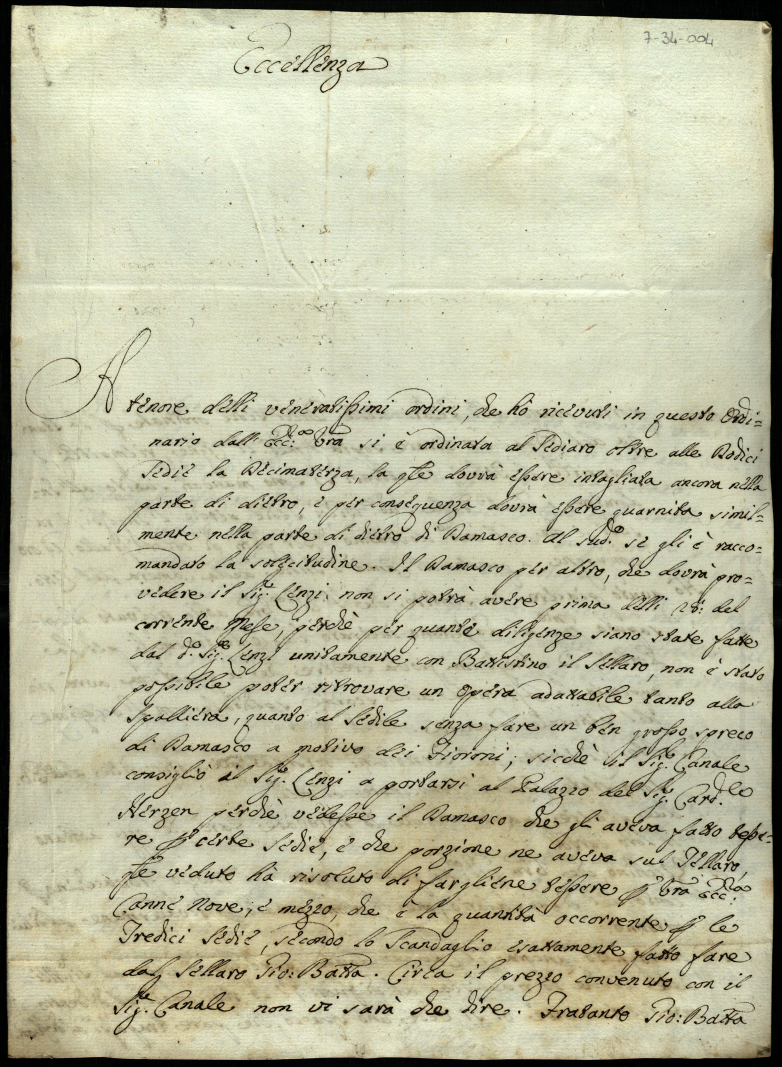 7-34-004
Eccellenza
A tenore delli veneratissimi ordini, che hò ricevuti in questo Ordi=
nario dall' Ecc.ª Vrã si è ordinata al Sediaro oltre alle Dodici
Sedie la Decimaterza, la qle dovrà essere intagliata ancora nella
parte di dietro, e per conseguenza dovrà essere guarnita simil=
mente nella parte di dietro di Damasco. Al sud.º se gli è racco=
mandato la sollecitudine. Il Damasco per altro, che dovrà pro=
vedere il Sig.r Lenzi non si potrà avere prima delli 28: del
corrente Mese, perchè per quante diligenze siano state fatte
dal d.º Sig.re Lenzi unitamente con Battistino il Sellaro, non è stato
possibile poter ritrovare un Opera adattabile tanto alla
Spalliera, quanto al sedile senza fare un ben grosso spreco
di Damasco a motivo dei Fioroni; sicchè il Sig.re Canale
consigliò il Sig.r Lenzi a portarsi al Palazzo del Sig.r Card.le
Herzen perchè vedesse il Damasco che gli aveva fatto tesse=
re p certe sedie, e che porzione ne aveva sul Tellaro,
qle veduto hà risoluto di fargliene tessere p Vrã Ecc.ª
Canne Nove, e mezzo, che è la quantità occorrente p le
Tredici Sedie, secondo lo Scandaglio esattamente fatto fare
dal Sellaro Gio: Batta. Circa il prezzo convenuto con il
Sig.re Canale non vi sarà che dire. Tratanto Gio: Batta